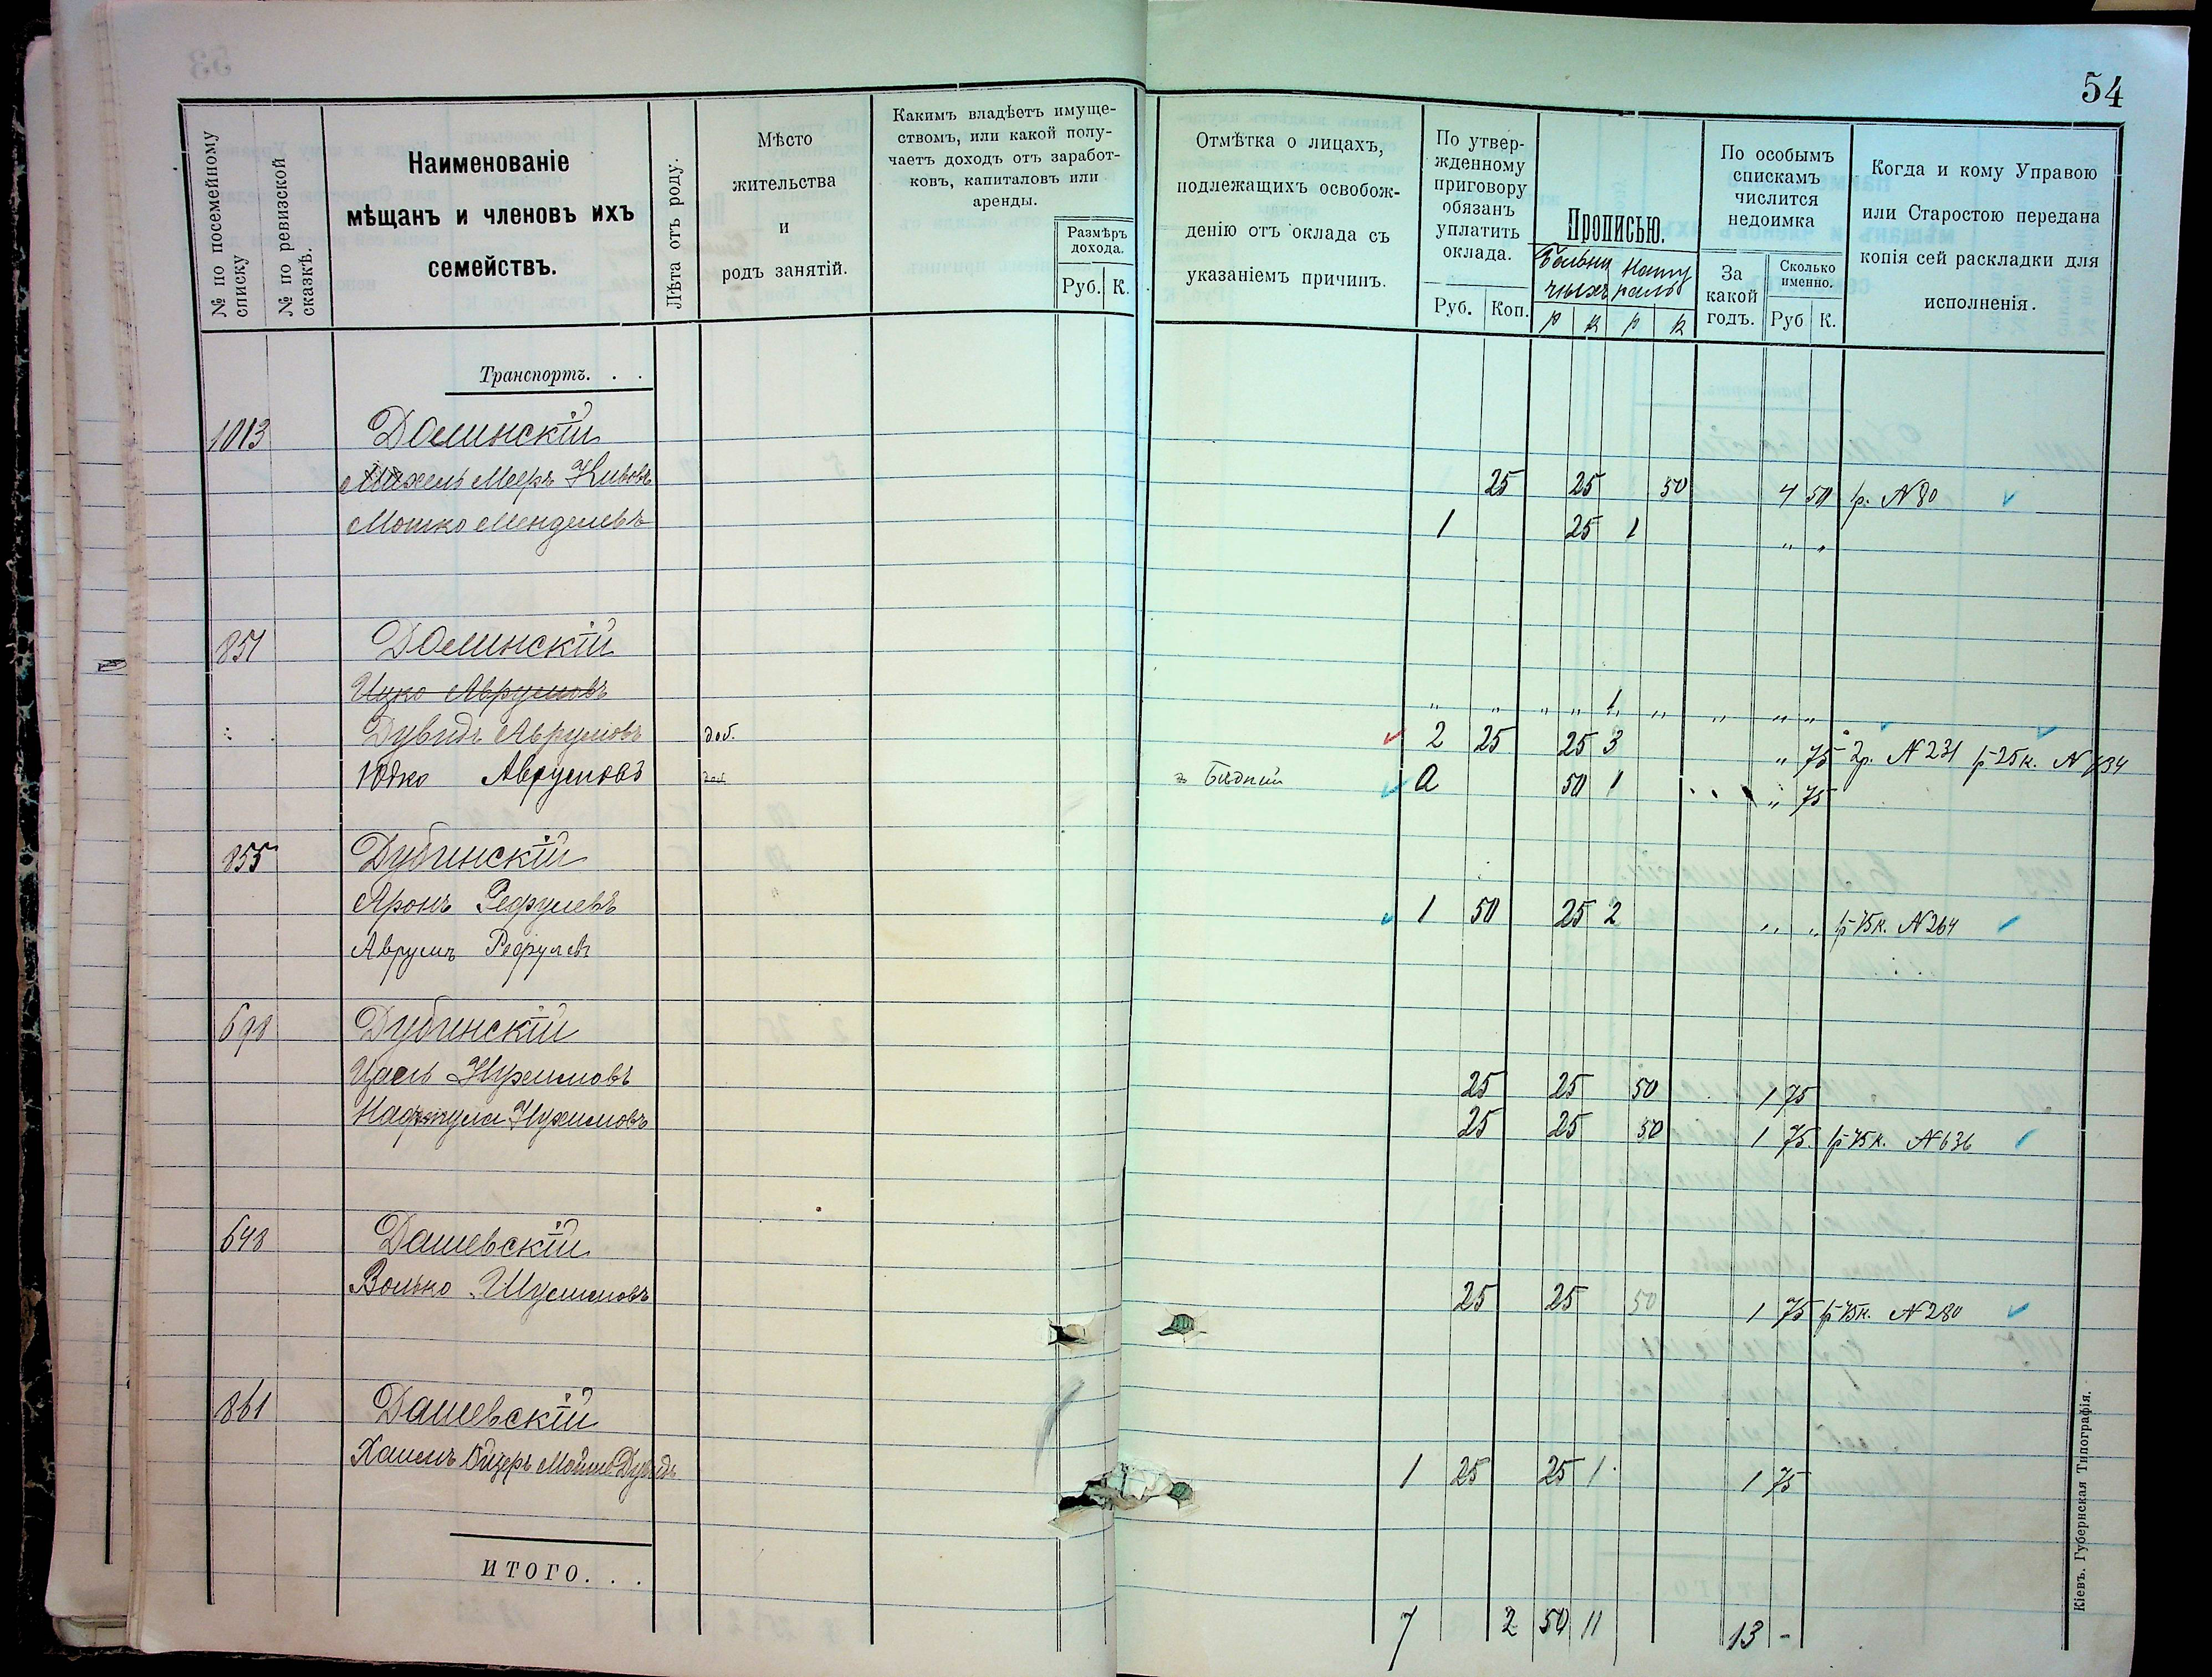 54
№ по посемейному списку
№ по ревизской сказкѣ.
Наименованіе
мѣщанъ и членовъ ихъ
семействъ.
Лѣта отъ роду.
Мѣсто
жительства
и
родъ занятій.
Какимъ владѣетъ имуще-
ствомъ, или какой полу-
чаетъ доходъ отъ заработ-
ковъ, капиталовъ или
аренды.
Размѣръ
дохода.
Руб. К.
Отмѣтка о лицахъ,
подлежащихъ освобож-
денію отъ оклада съ
указаніемъ причинъ.
По утвер-
жденному
приговору
обязанъ
уплатить
оклада.
Руб. Коп.
Прописью.
р к р к
По особымъ
спискамъ
числится
недоимка
За
какой
годъ.
Сколько
именно.
Руб К.
Когда и кому Управою
или Старостою передана
копія сей раскладки для
исполненія.
Транспортъ. . .
1013 Долинскій
Меръ 25 25 50 4 50 р. N 80
Мошко Менделевъ 1 25 1 " "
851 Долинскій
Ицко Аврумовъ " " " " 1 " " " "
Дувидъ Аврумовъ доб. 2 25 25 3 " 75 2р. N 231
Юдко Аврумовъ Бѣдный 50 1 " 75
855 Дубинскій
Аронъ Рефулевъ 1 50 25 2 " " 75к. N 264
Аврумъ Рефулевъ
698 Дубинскій
Нухимовъ 25 25 50 1 75
Нухимовъ 25 25 50 1 75 75к. N 636
648 Дашевскій
Волько 25 25 50 1 75 75к. N 280
861 Дашевскій
Хаимъ Мошко Дувидъ 1 25 25 1 1 75
ИТОГО. . .
7 2 50 11 13 -
Кіевъ. Губернская Типографія.